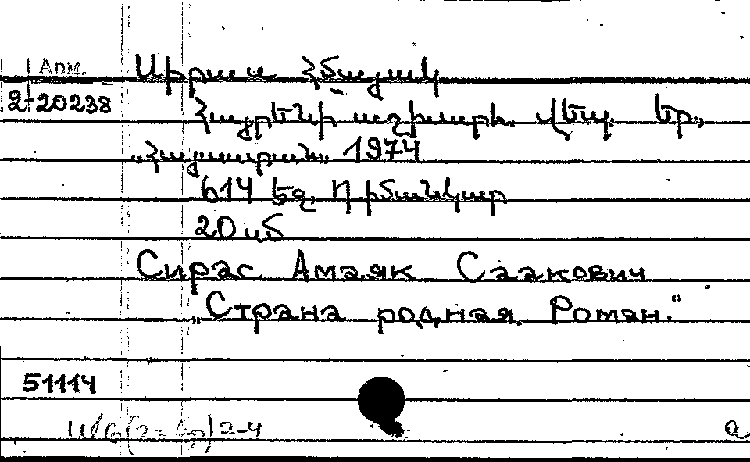 Арм. Սիրաս Հմայակ
2-20238 Հայրենի աշխարհ. Վեպ. Եր.,
„Հայաստան“ 1974
614 եջ. Դիմանկար
20 սմ
Сирас Амаяк Саакович
„Страна родная. Роман."
51114
2-4 а